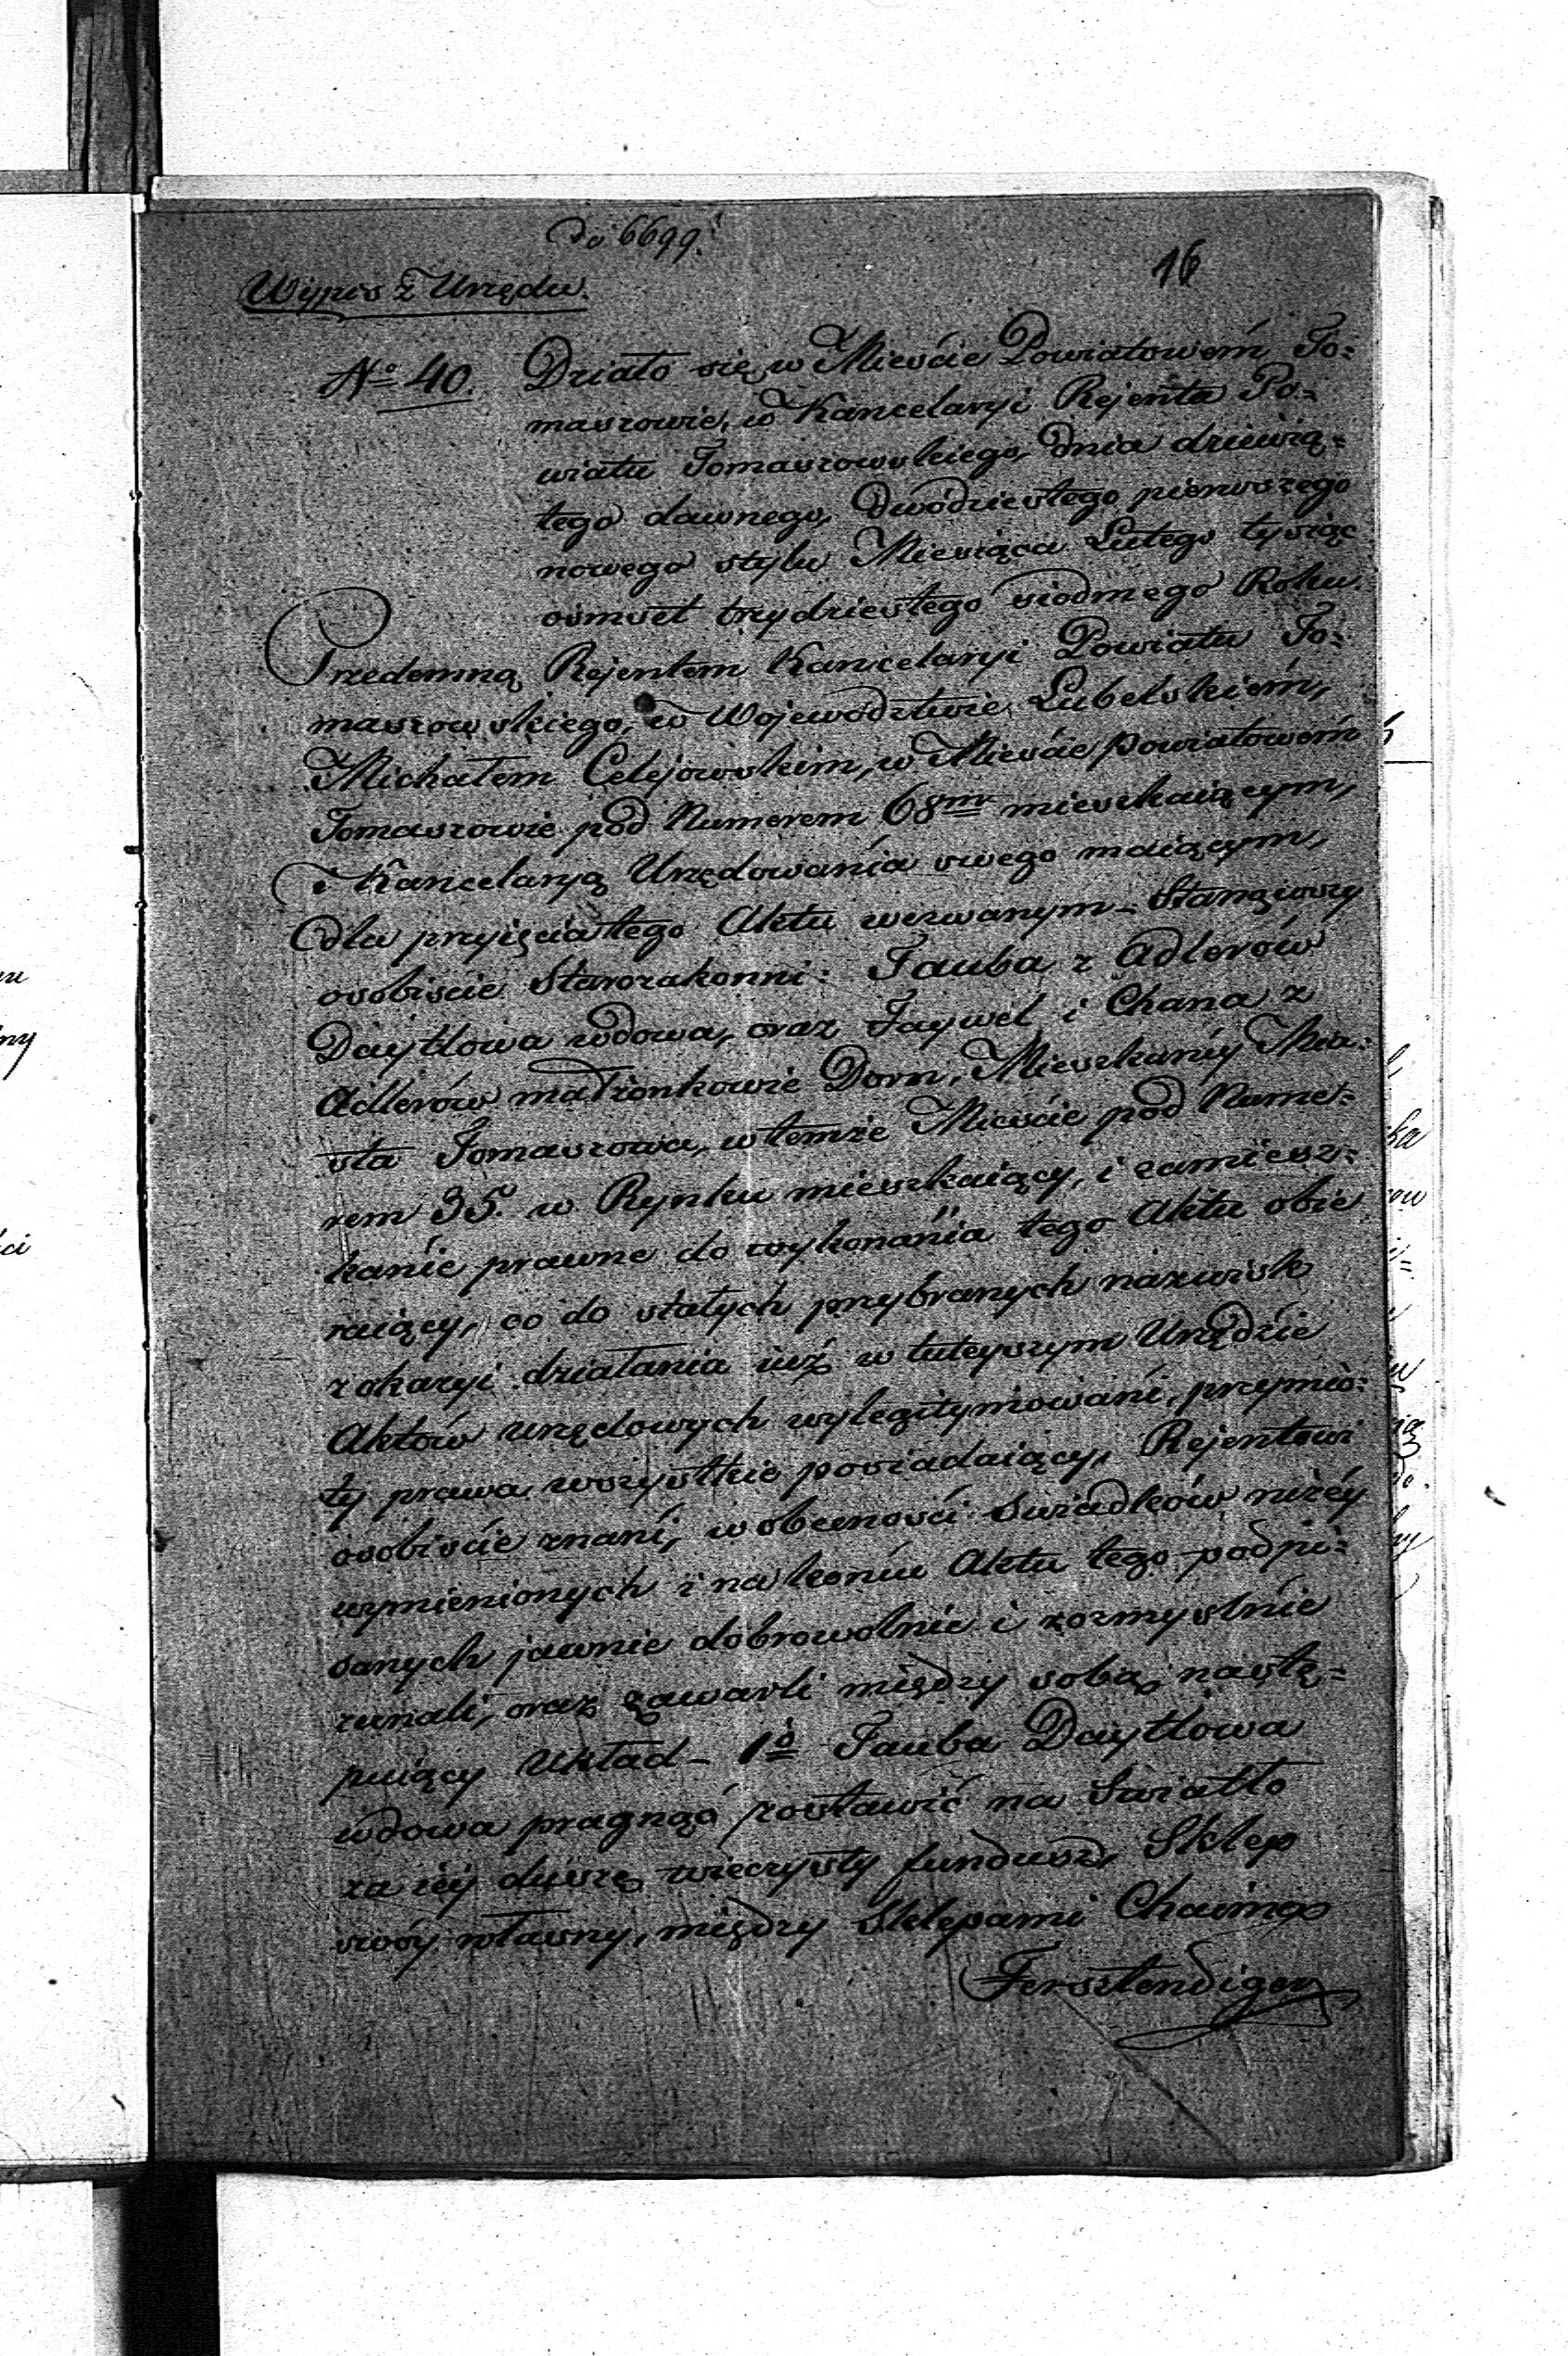 Do 6699.
16
Wypis z Urzędu.
No 40. Działo się w Mieście Powiatowém To=
maszowie, w Kancelaryi Rejenta Po=
wiatu Tomaszowskiego, dnia dziewią=
tego dawnego, dwódziestego pierwszego
nowego stylu Miesiąca Lutego tysiąc
osmset trzydziestego siodmego Roku.
Przedemną Rejentem Kancelaryi Powiatu To=
maszowskiego, w Wojewodztwie Lubelskiém,
Michałem Celejowskim, w Mieście powiatowém
Tomaszowie pod Numerem 68mo mieszkaiącym,
i Kancelaryą Urzędowania swego maiącym,
dla przyięcia tego Aktu wezwanym – Stanąwszy
osobiscie Starozakonni: Tauba z Adlerów
Daytlowa wdowa, oraz Faywel i Chana z
Adlerów małżonkowie Dorn, Mieszkańcy Mia=
sta Tomaszowa, w temże Mieście pod Nume=
rem 35. w Rynku mieszkaiący, i zamiesz=
kanie prawne do wykonania tego Aktu obie
raiący, co do stałych przybranych nazwisk
z okazyi działania iuż w tuteyszym Urzędzie
Aktów urzędowych wylegitymowani, przymio=
ty prawa wszystkie posiadaiący, Rejentowi
osobiście znani, w obecności Swiadków niżéy
wymienionych i na końcu Aktu tego podpi=
sanych jawnie dobrowolnie i rozmyslnie
zeznali, oraz zawarli między sobą nastę=
puiący Układ – 1o Tauba Daytlowa
wdowa pragnąc zostawić na Swiatło
za iéy duszę wieczysty fundusz, Sklep
swóy własny, między Sklepami Chaima
Fersztendiger